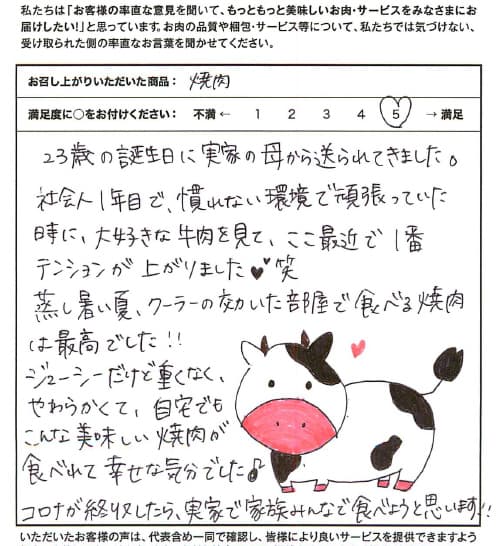 私たちは「お客様の率直な意見を聞いて、もっともっと美味しいお肉・サービスをみなさまにお
届けしたい！」と思っています。お肉の品質や梱包・サービス等について、私たちでは気づけない、
受け取られた側の率直なお言葉を聞かせてください。
お召し上がりいただいた商品： 焼肉
満足度に○をお付けください： 不満 ← 1 2 3 4 5 → 満足
23歳の誕生日に実家の母から送られてきました。
社会人1年目で、慣れない環境で頑張っていた
時に、大好きな牛肉を見て、ここ最近で1番
テンションが上がりました♥♥笑
蒸し暑い夏、クーラーの効いた部屋で食べる焼肉
は最高でした!!
ジューシーだけど重くなく、
やわらかくて、自宅でも
こんな美味しい焼肉が
食べれて幸せな気分でした♪
コロナが終息したら、実家で家族みんなで食べようと思います!!
いただいたお客様の声は、代表含め一同で確認し、皆様により良いサービスを提供できますよう